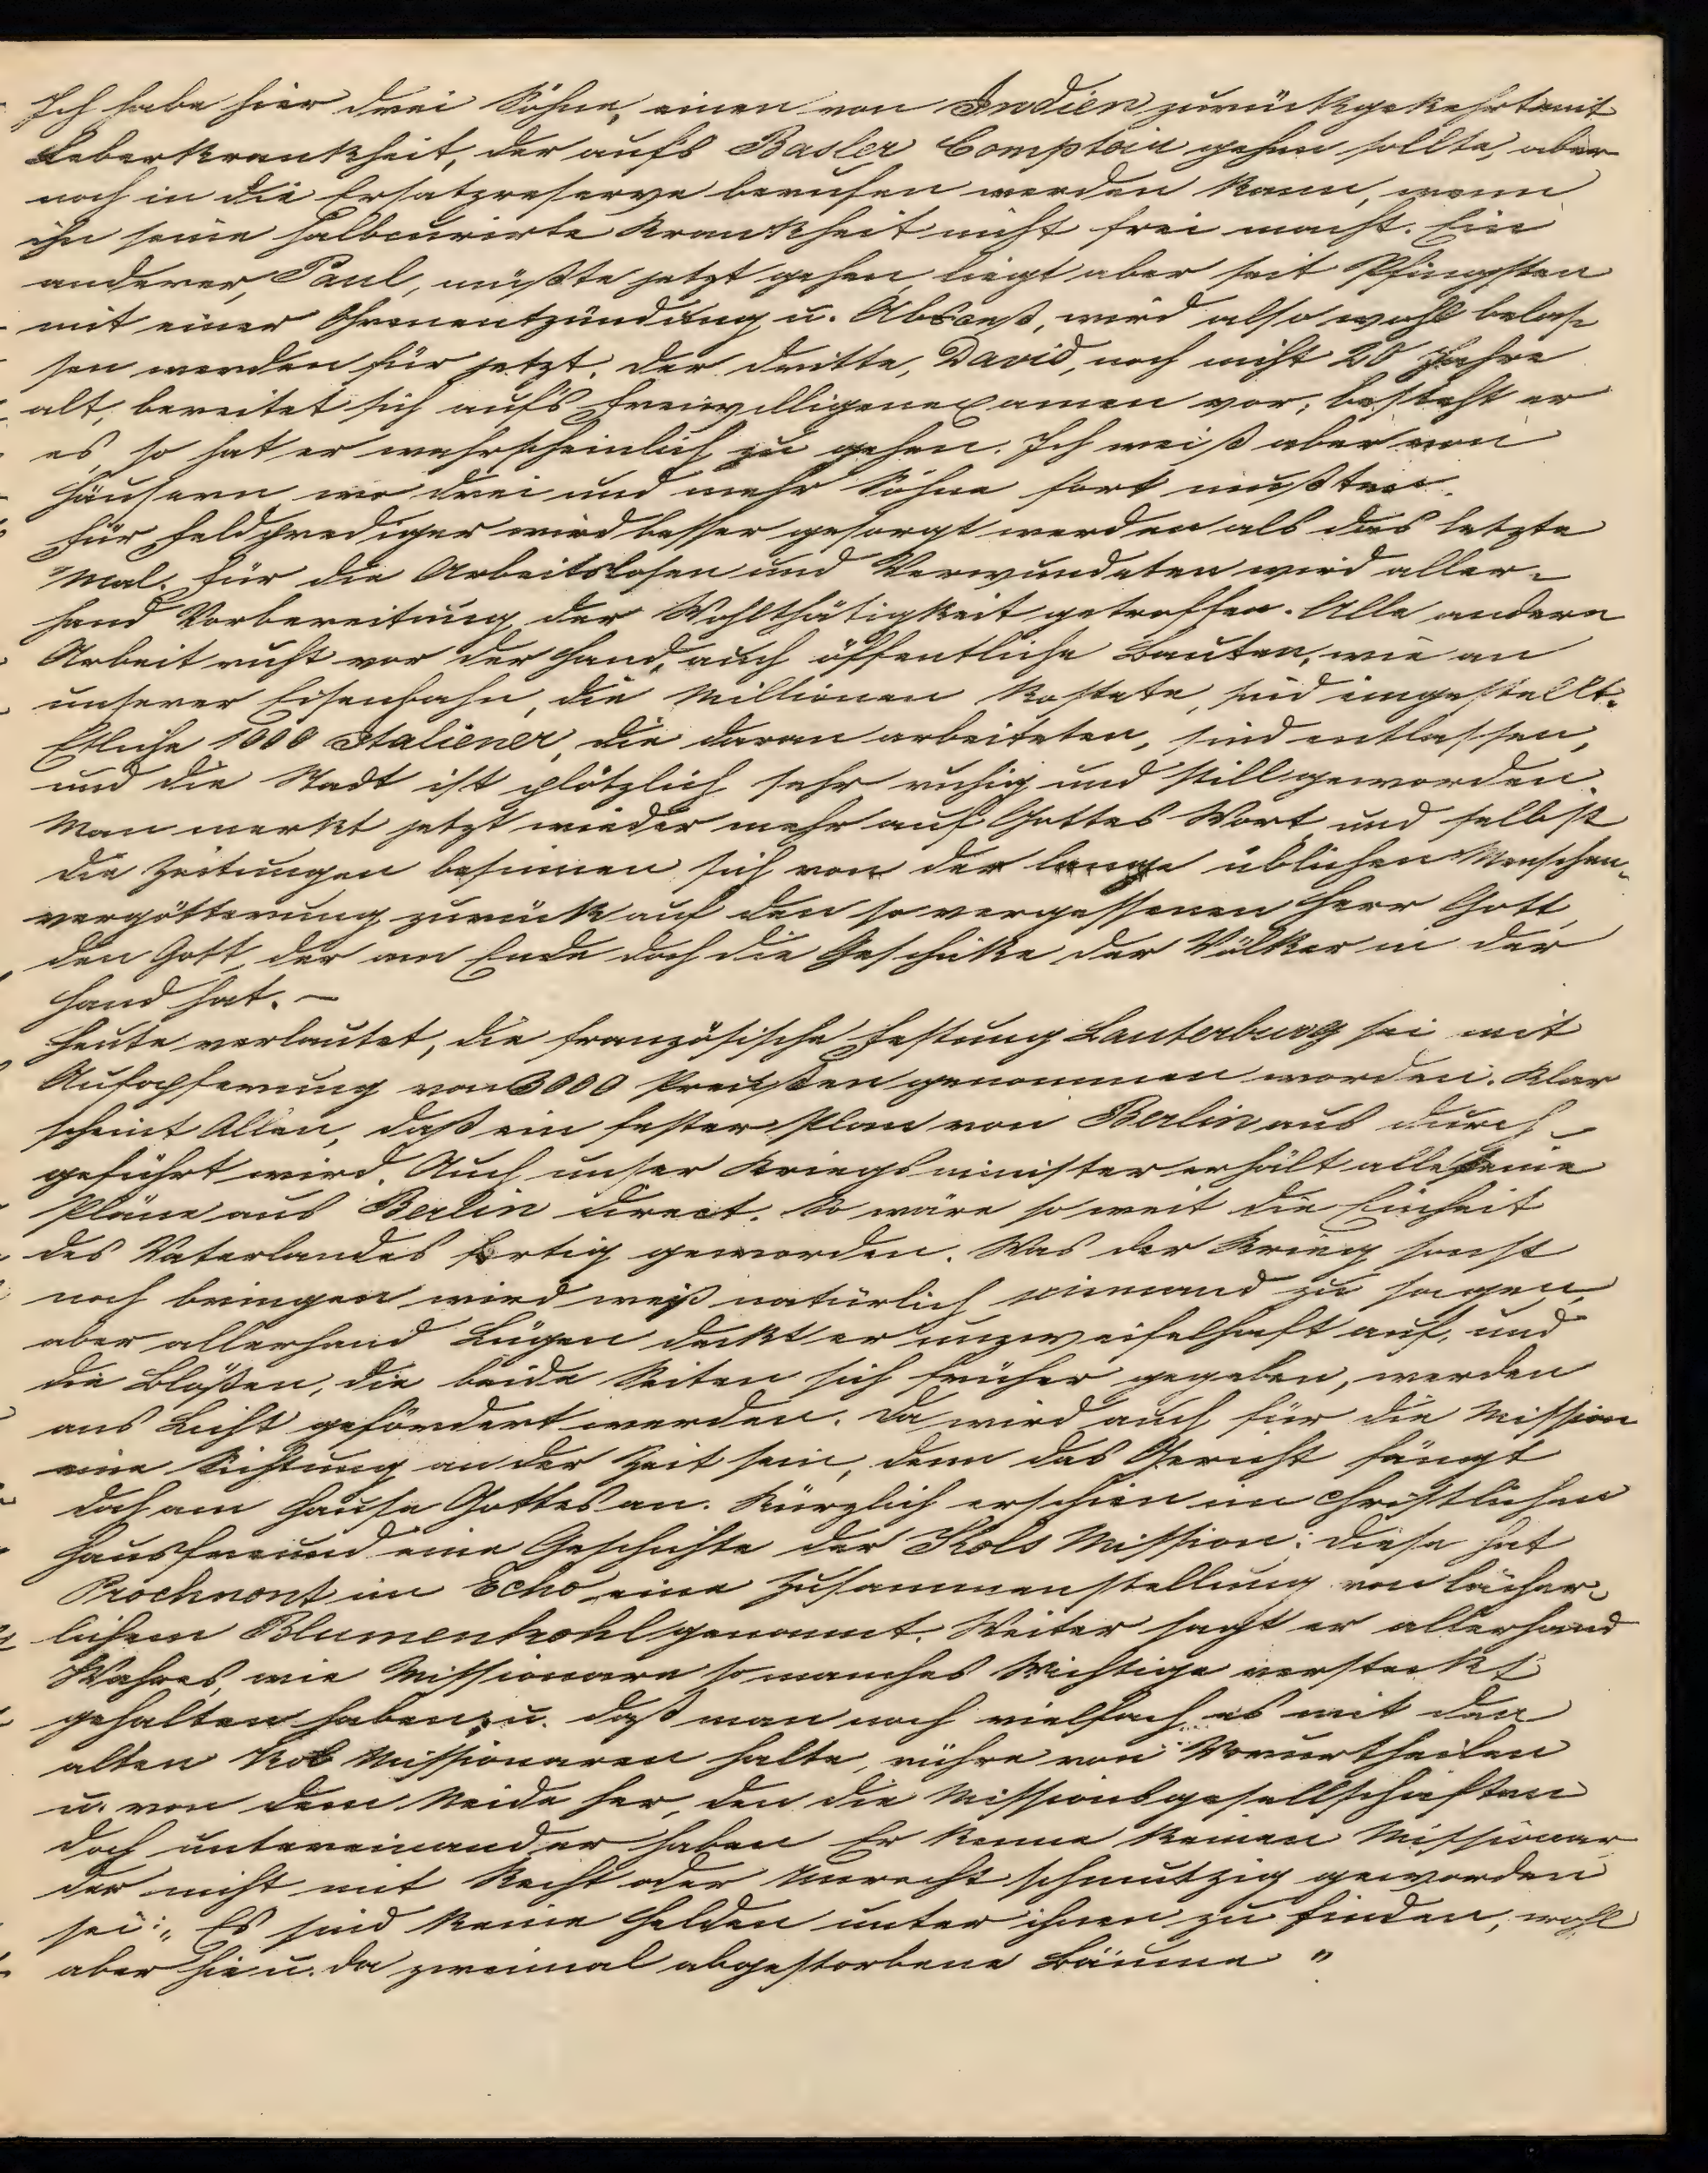 Ich habe hier drei Söhne, einen von Indien zurückgekehrt mit
Leberkrankheit, der aufs Basler Comptoir gehen sollte, aber
noch in die Ersatzreserve berufen werden kann, wenn
ihn seine halbcurirte Krankheit nicht frei macht. Ein
anderer, Paul, müßte jetzt gehen, liegt aber seit Pfingsten
mit einer Ohrenentzündung u. Absceß, wird also wohl belas-
sen werden für jetzt. Der dritte, David, noch nicht 20 Jahre
alt, bereitet sich aufs Freiwilligenexamen vor; besteht er
es, so hat er wahrscheinlich zu gehen. Ich weiß aber von
Häusern wo drei und mehr Söhne fort mußten.
Für Feldprediger wird besser gesorgt werden als das letzte
Mal. Für die Arbeitslosen und Verwundeten wird aller-
hand Vorbereitung der Wohlthätigkeit getroffen. Alle andere
Arbeit ruht vor der Hand, auch öffentliche Bauten, wie an
unserer Eisenbahn, die Millionen kostete, sind eingestellt.
Etliche 1000 Italiener, die daran arbeiteten, sind entlassen,
und die Stadt ist plötzlich sehr ruhig und still geworden.
Man merkt jetzt wieder mehr auf Gottes Wort und selbst
die Zeitungen besinnen sich von der lange üblichen Menschen-
vergötterung zurück auf den so vergessenen Herr Gott,
den Gott, der am Ende doch die Geschicke der Völker in der
Hand hat. –
Heute verlautet, die französische Festung Lauterburg sei mit
Aufopferung von 3000 Preußen genommen worden. Klar
scheint Allen, daß ein fester Plan von Berlin aus durch-
geführt wird. Auch unser Kriegsminister erhält alle seine
Pläne aus Berlin direct. So wäre so weit die Einheit
des Vaterlandes fertig geworden. Was der Krieg sonst
noch bringen wird weiß natürlich niemand zu sagen,
aber allerhand Lügen deckt er unzweifelhaft auf, und
die Blößen, die beide Seiten sich früher gegeben, werden
ans Licht gefördert werden. Da wird auch für die Mission
eine Sichtung an der Zeit sein, denn das Gericht fängt
doch am Hause Gottes an. Kürzlich erschien im christlichen
Hausfreund eine Geschichte der Kols Mission: diese hat
Prochnont im Echo eine Zusammenstellung von lächer-
lichem Blumenkohl genannt. Weiter sagt er allerhand
Wahres, wie Missionare so manches Wichtige versteckt
gehalten haben, u. daß man noch vielfach es mit den
alten Kols Missionaren halte, rühre von Vorurtheilen
u. von dem Neide her, den die Missionsgesellschaften
doch untereinander haben Er kenne keinen Missionar
der nicht mit Recht oder Unrecht schmutzig geworden
sei: „Es sind keine Helden unter ihnen zu finden, wohl
aber hie u. da zweimal abgestorbene Bäume"